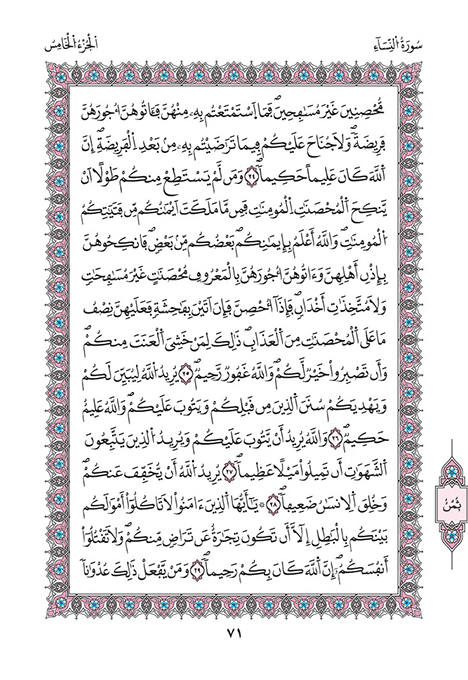 سُورَةُ اَلنِّسَآءِ
اَلْجُزْءُ اَلْخَامِسُ
مُّحْصِنِينَ غَيْرَ مُسَٰفِحِينَۖ فَمَا اَسْتَمْتَعْتُم بِهِۦ مِنْهُنَّ فَـَٔاتُوهُنَّ أُجُورَهُنَّ
فَرِيضَةٗۖ وَلَا جُنَاحَ عَلَيْكُمْ فِيمَا تَرَٰضَيْتُم بِهِۦ مِنۢ بَعْدِ اِلْفَرِيضَةِۖ إِنَّ
اَللَّهَ كَانَ عَلِيماً حَكِيماٗۖ ٢٤ وَمَن لَّمْ يَسْتَطِعْ مِنكُمْ طَوْلًا اَنْ
يَّنكِحَ اَلْمُحْصَنَٰتِ اِلْمُومِنَٰتِ فَمِن مَّا مَلَكَتَ اَيْمَٰنُكُم مِّن فَتَيَٰتِكُمُ
اُلْمُومِنَٰتِۖ وَاللَّهُ أَعْلَمُ بِإِيمَٰنِكُمۖ بَعْضُكُم مِّنۢ بَعْضٖۖ فَانكِحُوهُنَّ
بِإِذْنِ أَهْلِهِنَّ وَءَاتُوهُنَّ أُجُورَهُنَّ بِالْمَعْرُوفِ مُحْصَنَٰتٍ غَيْرَ مُسَٰفِحَٰتٖ
وَلَا مُتَّخِذَٰتِ أَخْدَانٖۖ فَإِذَآ أُحْصِنَّ فَإِنَ اَتَيْنَ بِفَٰحِشَةٖ فَعَلَيْهِنَّ نِصْفُ
مَا عَلَى اَلْمُحْصَنَٰتِ مِنَ اَلْعَذَابِۖ ذَٰلِكَ لِمَنْ خَشِيَ اَلْعَنَتَ مِنكُمْۖ
وَأَن تَصْبِرُواْ خَيْرٞ لَّكُمْۖ وَاللَّهُ غَفُورٞ رَّحِيمٞۖ ٢٥ يُرِيدُ اُللَّهُ لِيُبَيِّنَ لَكُمْ
وَيَهْدِيَكُمْ سُنَنَ اَلذِينَ مِن قَبْلِكُمْ وَيَتُوبَ عَلَيْكُمْۖ وَاللَّهُ عَلِيمٌ
حَكِيمٞۖ ٢٦ وَاللَّهُ يُرِيدُ أَنْ يَّتُوبَ عَلَيْكُمْ وَيُرِيدُ اُلذِينَ يَتَّبِعُونَ
اَلشَّهَوَٰتِ أَن تَمِيلُواْ مَيْلًا عَظِيماٗۖ ٢٧ يُرِيدُ اُللَّهُ أَنْ يُّخَفِّفَ عَنكُمْۖ
وَخُلِقَ اَلِانسَٰنُ ضَعِيفاٗۖ ٢٨ ۞ يَٰٓأَيُّهَا اَلذِينَ ءَامَنُواْ لَا تَاكُلُوٓاْ أَمْوَٰلَكُم
بَيْنَكُم بِالْبَٰطِلِ إِلَّآ أَن تَكُونَ تِجَٰرَةٌ عَن تَرَاضٖ مِّنكُمْۖ وَلَا تَقْتُلُوٓاْ
أَنفُسَكُمْۖ إِنَّ اَللَّهَ كَانَ بِكُمْ رَحِيماٗۖ ٢٩ وَمَنْ يَّفْعَلْ ذَٰلِكَ عُدْوَٰناٗ
ثُمُنْ
٧١